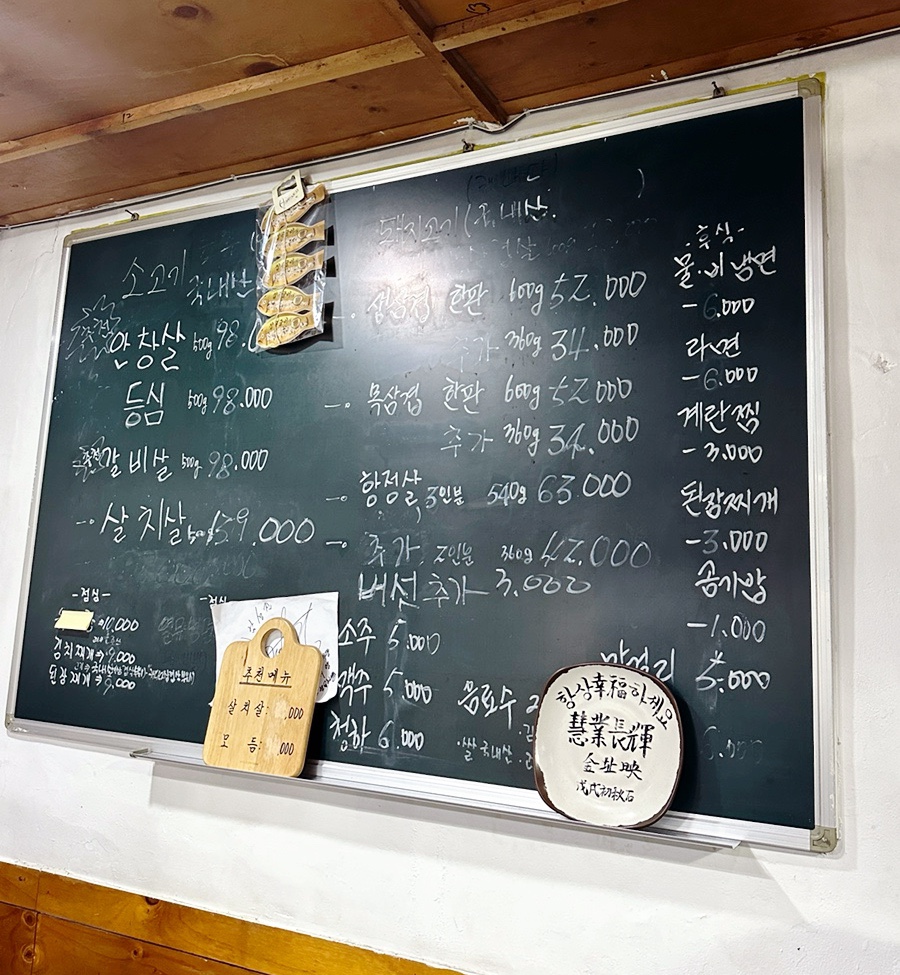 소고기 국내산
추천 안창살 500g 98.0
등심 500g 98.000
추천 갈비살 500g 98.000
살치살 500g 139.000
-점심-
10,000
김치찌개 → 9.000
된장찌개 → 9.000
돼지고기 (국내산.
생삼겹 한판 600g 52.000
추가 360g 34.000
목삼겹 한판 600g 52.000
추가 360g 34.000
항정살 3인분 540g 63.000
추가 2인분 360g 42.000
버섯추가 3.000
소주 5.000
맥주 5.000
청하 6.000
음료수 2
막걸리 5.000
-후식-
물.비냉면
-6.000
라면
-6.000
계란찜
-3.000
된장찌개
-3.000
공기밥
-1.000
추천메뉴
살치살: 000
모듬: 000
항상幸福하세요
慧業長輝
金址映
戊戌初秋石